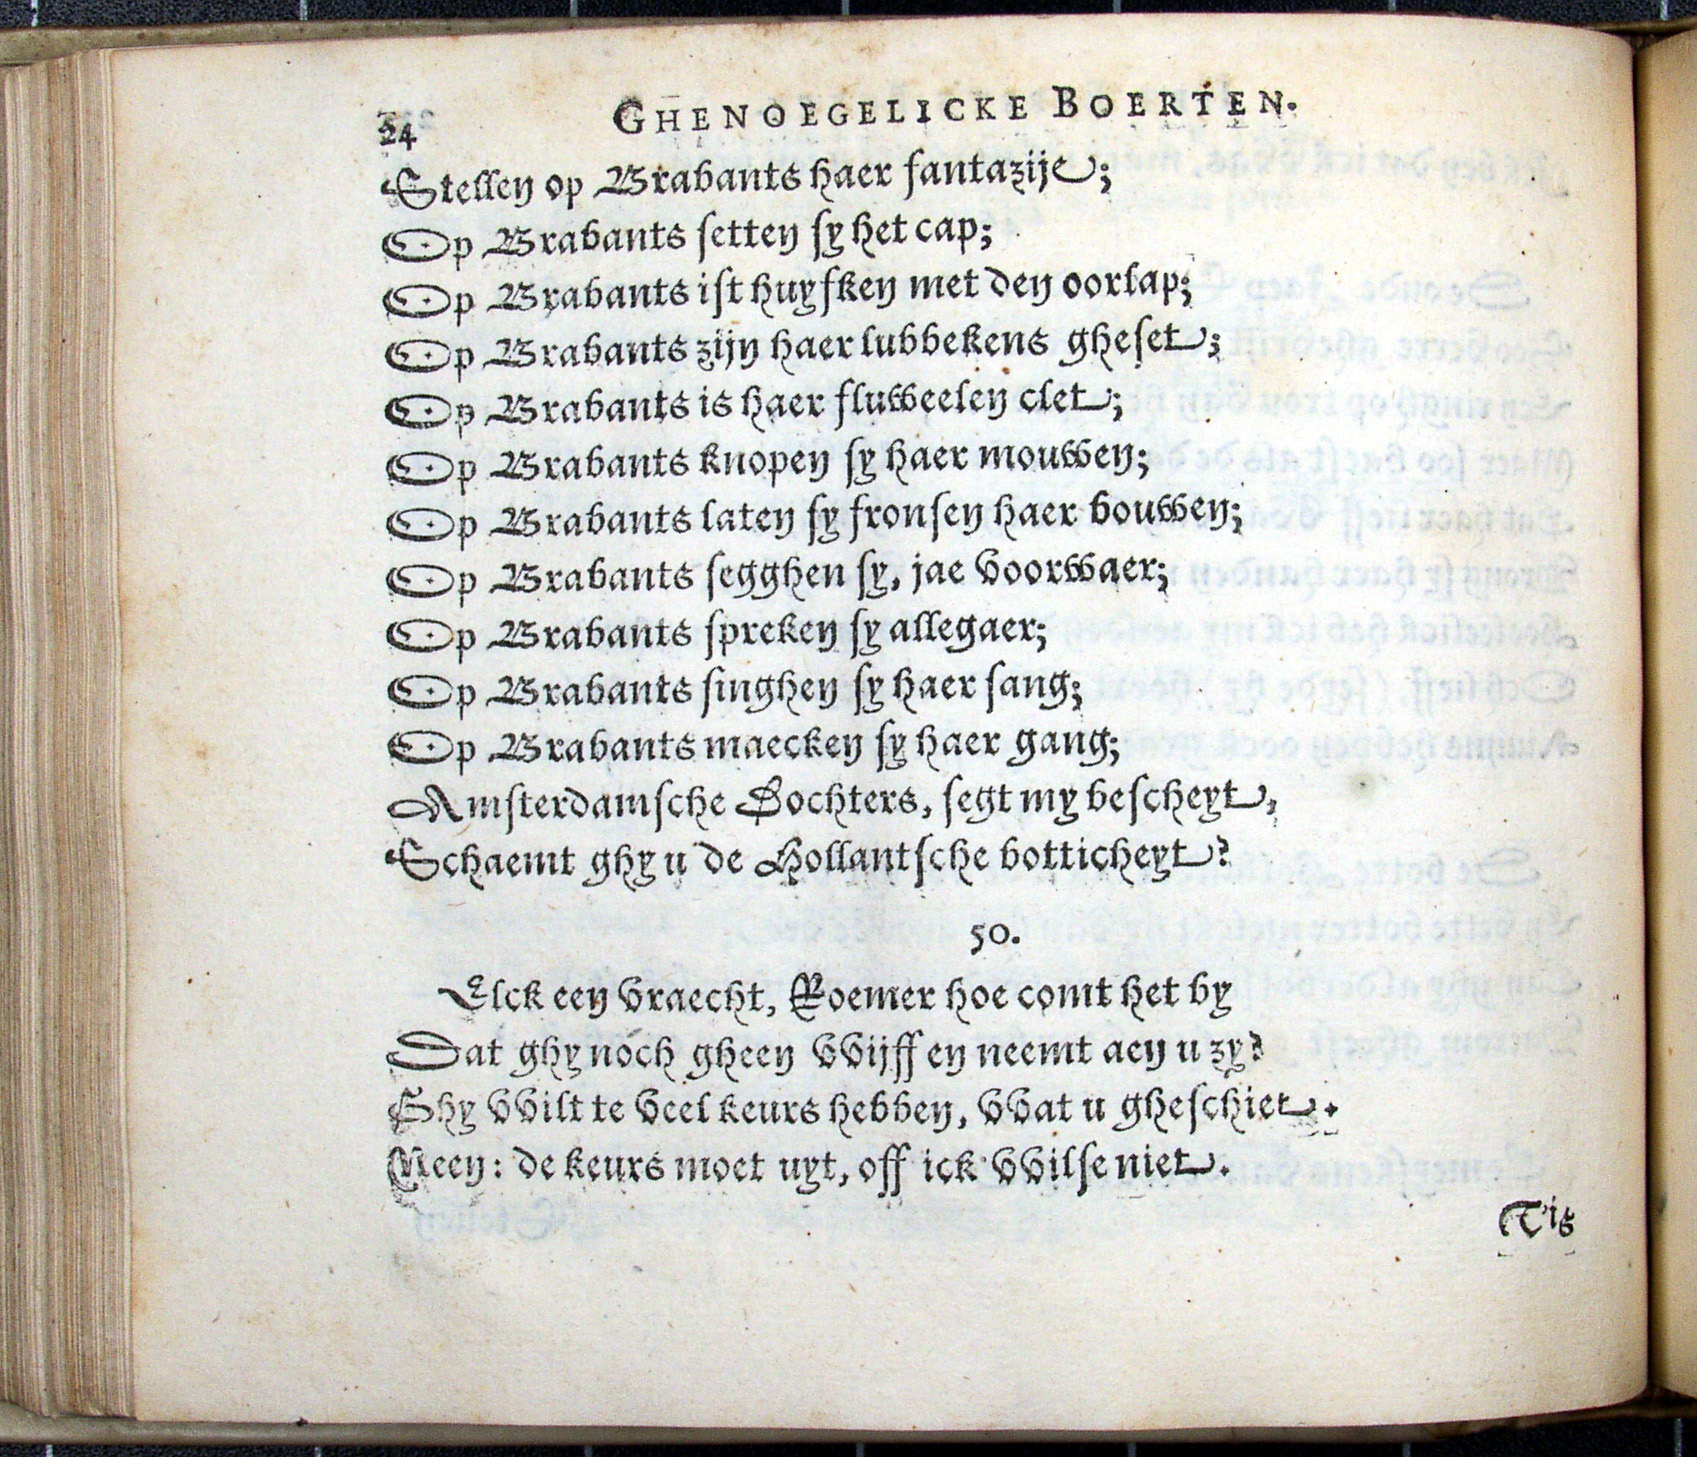 24 GHENOEGELICKE BOERTEN.
Stellen op Brabants haer fantazije;
Op Brabants setten sy het cap;
Op Brabants ist huysken met den oorlap;
Op Brabants zijn haer lubbekens gheset;
Op Brabants is haer fluweelen clet;
Op Brabants knopen sy haer mouwen;
Op Brabants laten sy fronsen haer bouwen;
Op Brabants segghen sy, jae voorwaer;
Op Brabants spreken sy allegaer;
Op Brabants singhen sy haer sang;
Op Brabants maecken sy haer gang;
Amsterdamsche Dochters, segt my bescheyt,
Schaemt ghy u de Hollantsche botticheyt?
50.
Elck een vraecht, Roemer hoe comt het by
Dat ghy noch gheen VVijff en neemt aen u zy?
Ghy VVilt te veel keurs hebben, VVat u gheschiet.
Neen: de keurs moet uyt, off ick VVilse niet.
T'is